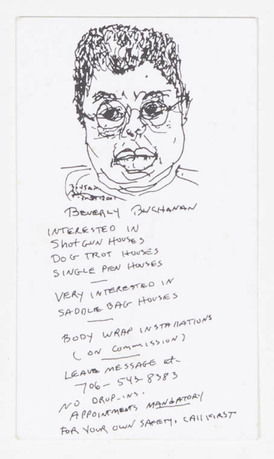 BEVERLY BUCHANAN
INTERESTED IN
SHOTGUN HOUSES
DOG TROT HOUSES
SINGLE PEN HOUSES
VERY INTERESTED IN
SADDLE BAG HOUSES
BODY WRAP INSTALLATIONS
(ON COMMISSION)
LEAVE MESSAGE at-
706-543-8383
NO DROP-INS.
APPOINTMENTS MANDATORY
FOR YOUR OWN SAFETY, CALL FIRST